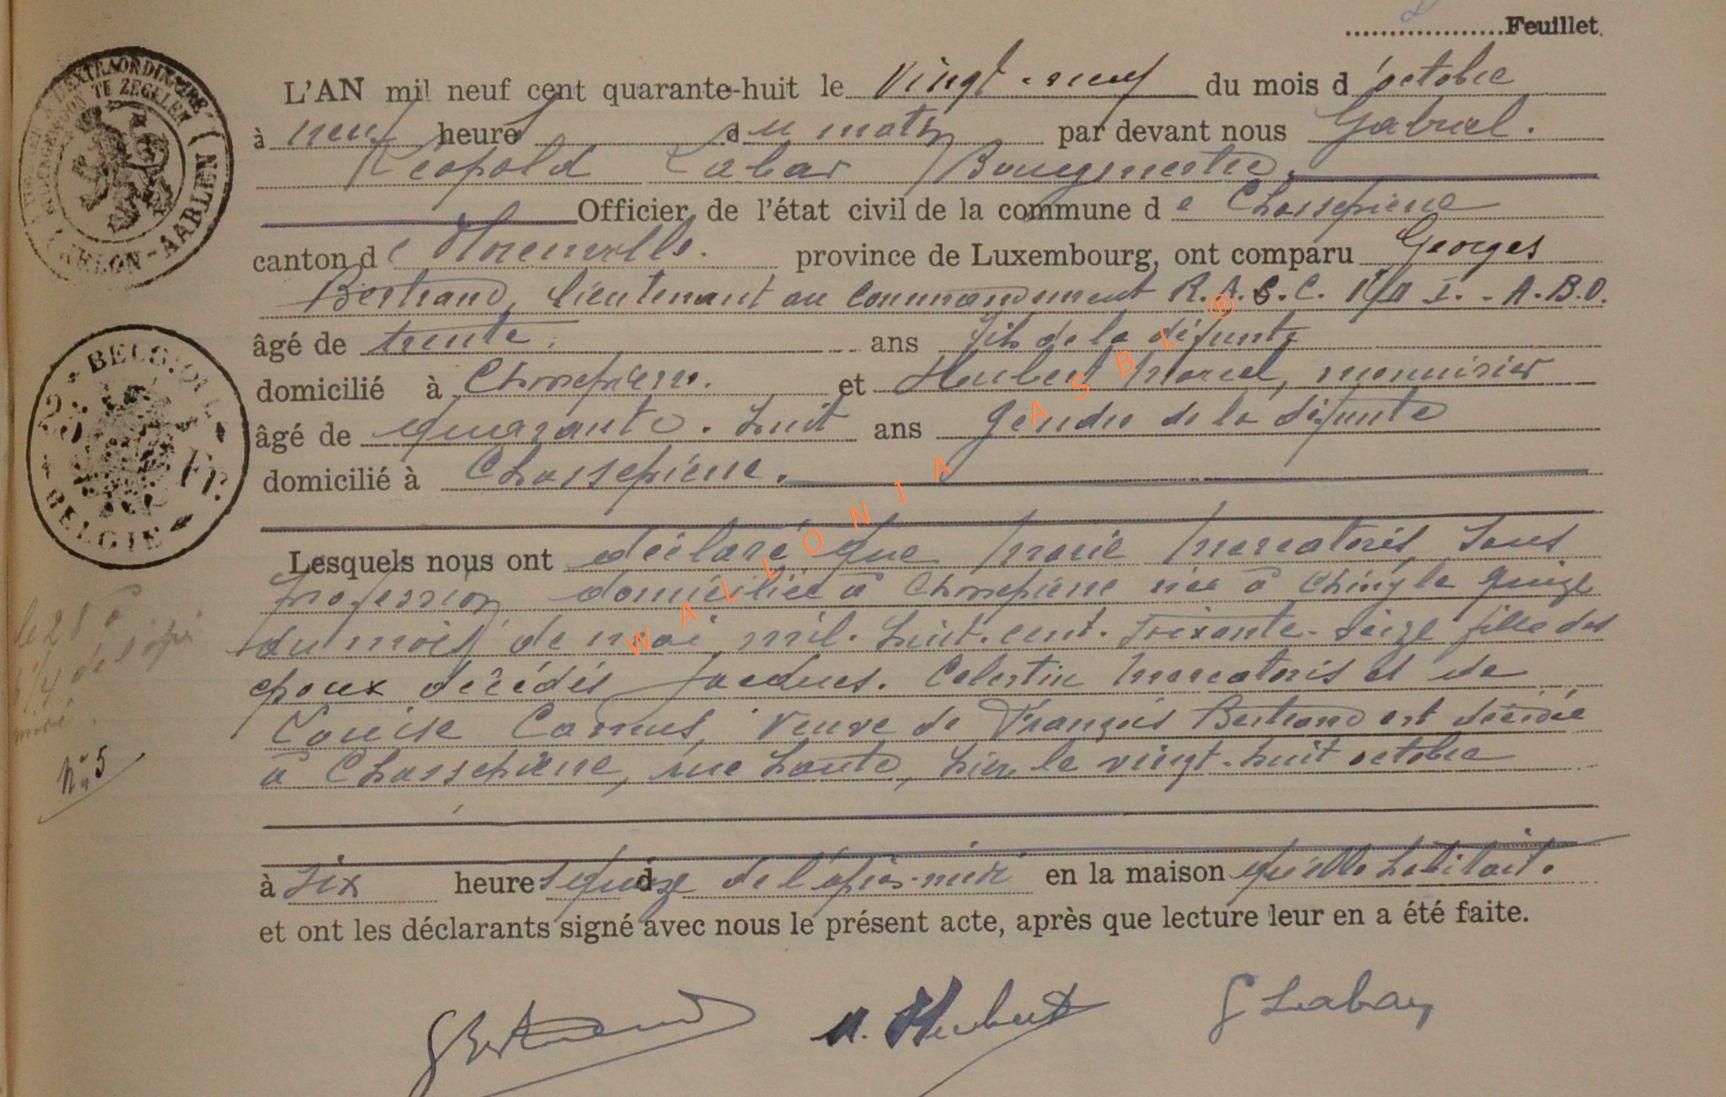 Feuillet.
L'AN mil neuf cent quarante-huit le vingt-neuf du mois d'octobre
à neuf heures du matin par devant nous Gabriel.
Léopold Labar Bourgmestre.
Officier de l'état civil de la commune de Chassepierre
canton de Florenville. province de Luxembourg, ont comparu Georges
Bertrand, lieutenant au commandement R.A.S.C. A.B.O.
âgé de trente. ans fils de la défunte
domicilié à Chassepierre. et Hubert Marcel, menuisier
âgé de quarante-huit ans gendre de la défunte
domicilié à Chassepierre.
Lesquels nous ont déclaré que Marie Mercatoris sans
profession domiciliée à Chassepierre née à Chiny le quinze
du mois de mai mil-huit-cent-soixante-seize fille des
époux décédés Jacques. Célestin Mercatoris et de
Louise Camus, veuve de François Bertrand est décédée
à Chassepierre, rue Haute, hier le vingt-huit octobre
à six heures quinze de l'après-midi en la maison qu'elle habitait.
et ont les déclarants signé avec nous le présent acte, après que lecture leur en a été faite.
GBertrand M. Hubert G Labar
le 28 à
6 1/4 de l'après
midi.
N° 5
ARLON-AARLEN
BELGIQUE
Fr.
BELGIE
WALLONIA ASBL ®